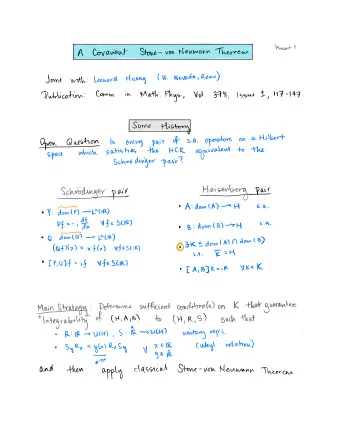 A Covariant Stone-von Neumann Theorem
Joint with: Leonard Huang (U. Nevada, Reno)
Publication: Comm in Math. Phys, Vol. 378, Issue 1, 117-147
Some History
Open Question Is every pair of s.a. operators on a Hilbert
space which satisfies the HCR equivalent to the
Schrödinger pair?
Schrödinger pair
Heisenberg pair
• P: dom(P) → L²(ℝ)
Pf = -i df/dx ∀f∈S(ℝ)
• Q: dom(Q) → L²(ℝ)
(Qf)(x) = x f(x) ∀f∈S(ℝ)
• [P,Q]f = if ∀f∈S(ℝ)
• A: dom(A) → H s.a.
• B: dom(B) → H s.a.
• ∃K ≤ dom(A) ∩ dom(B)
s.t. K̄ = H
• [A,B]k = ik ∀k∈K
Main Strategy: Determine sufficient condition(s) on K that guarantee
"Integrability" of (H,A,B) to (H,R,S) such that
• R: ℝ → U(H), S: ℝ̂ → U(H) unitary reps.
• S_y R_x = y(x) R_x S_y ∀ x∈ℝ (Weyl relation)
y∈ℝ̂
and then apply classical Stone-von Neumann Theorem